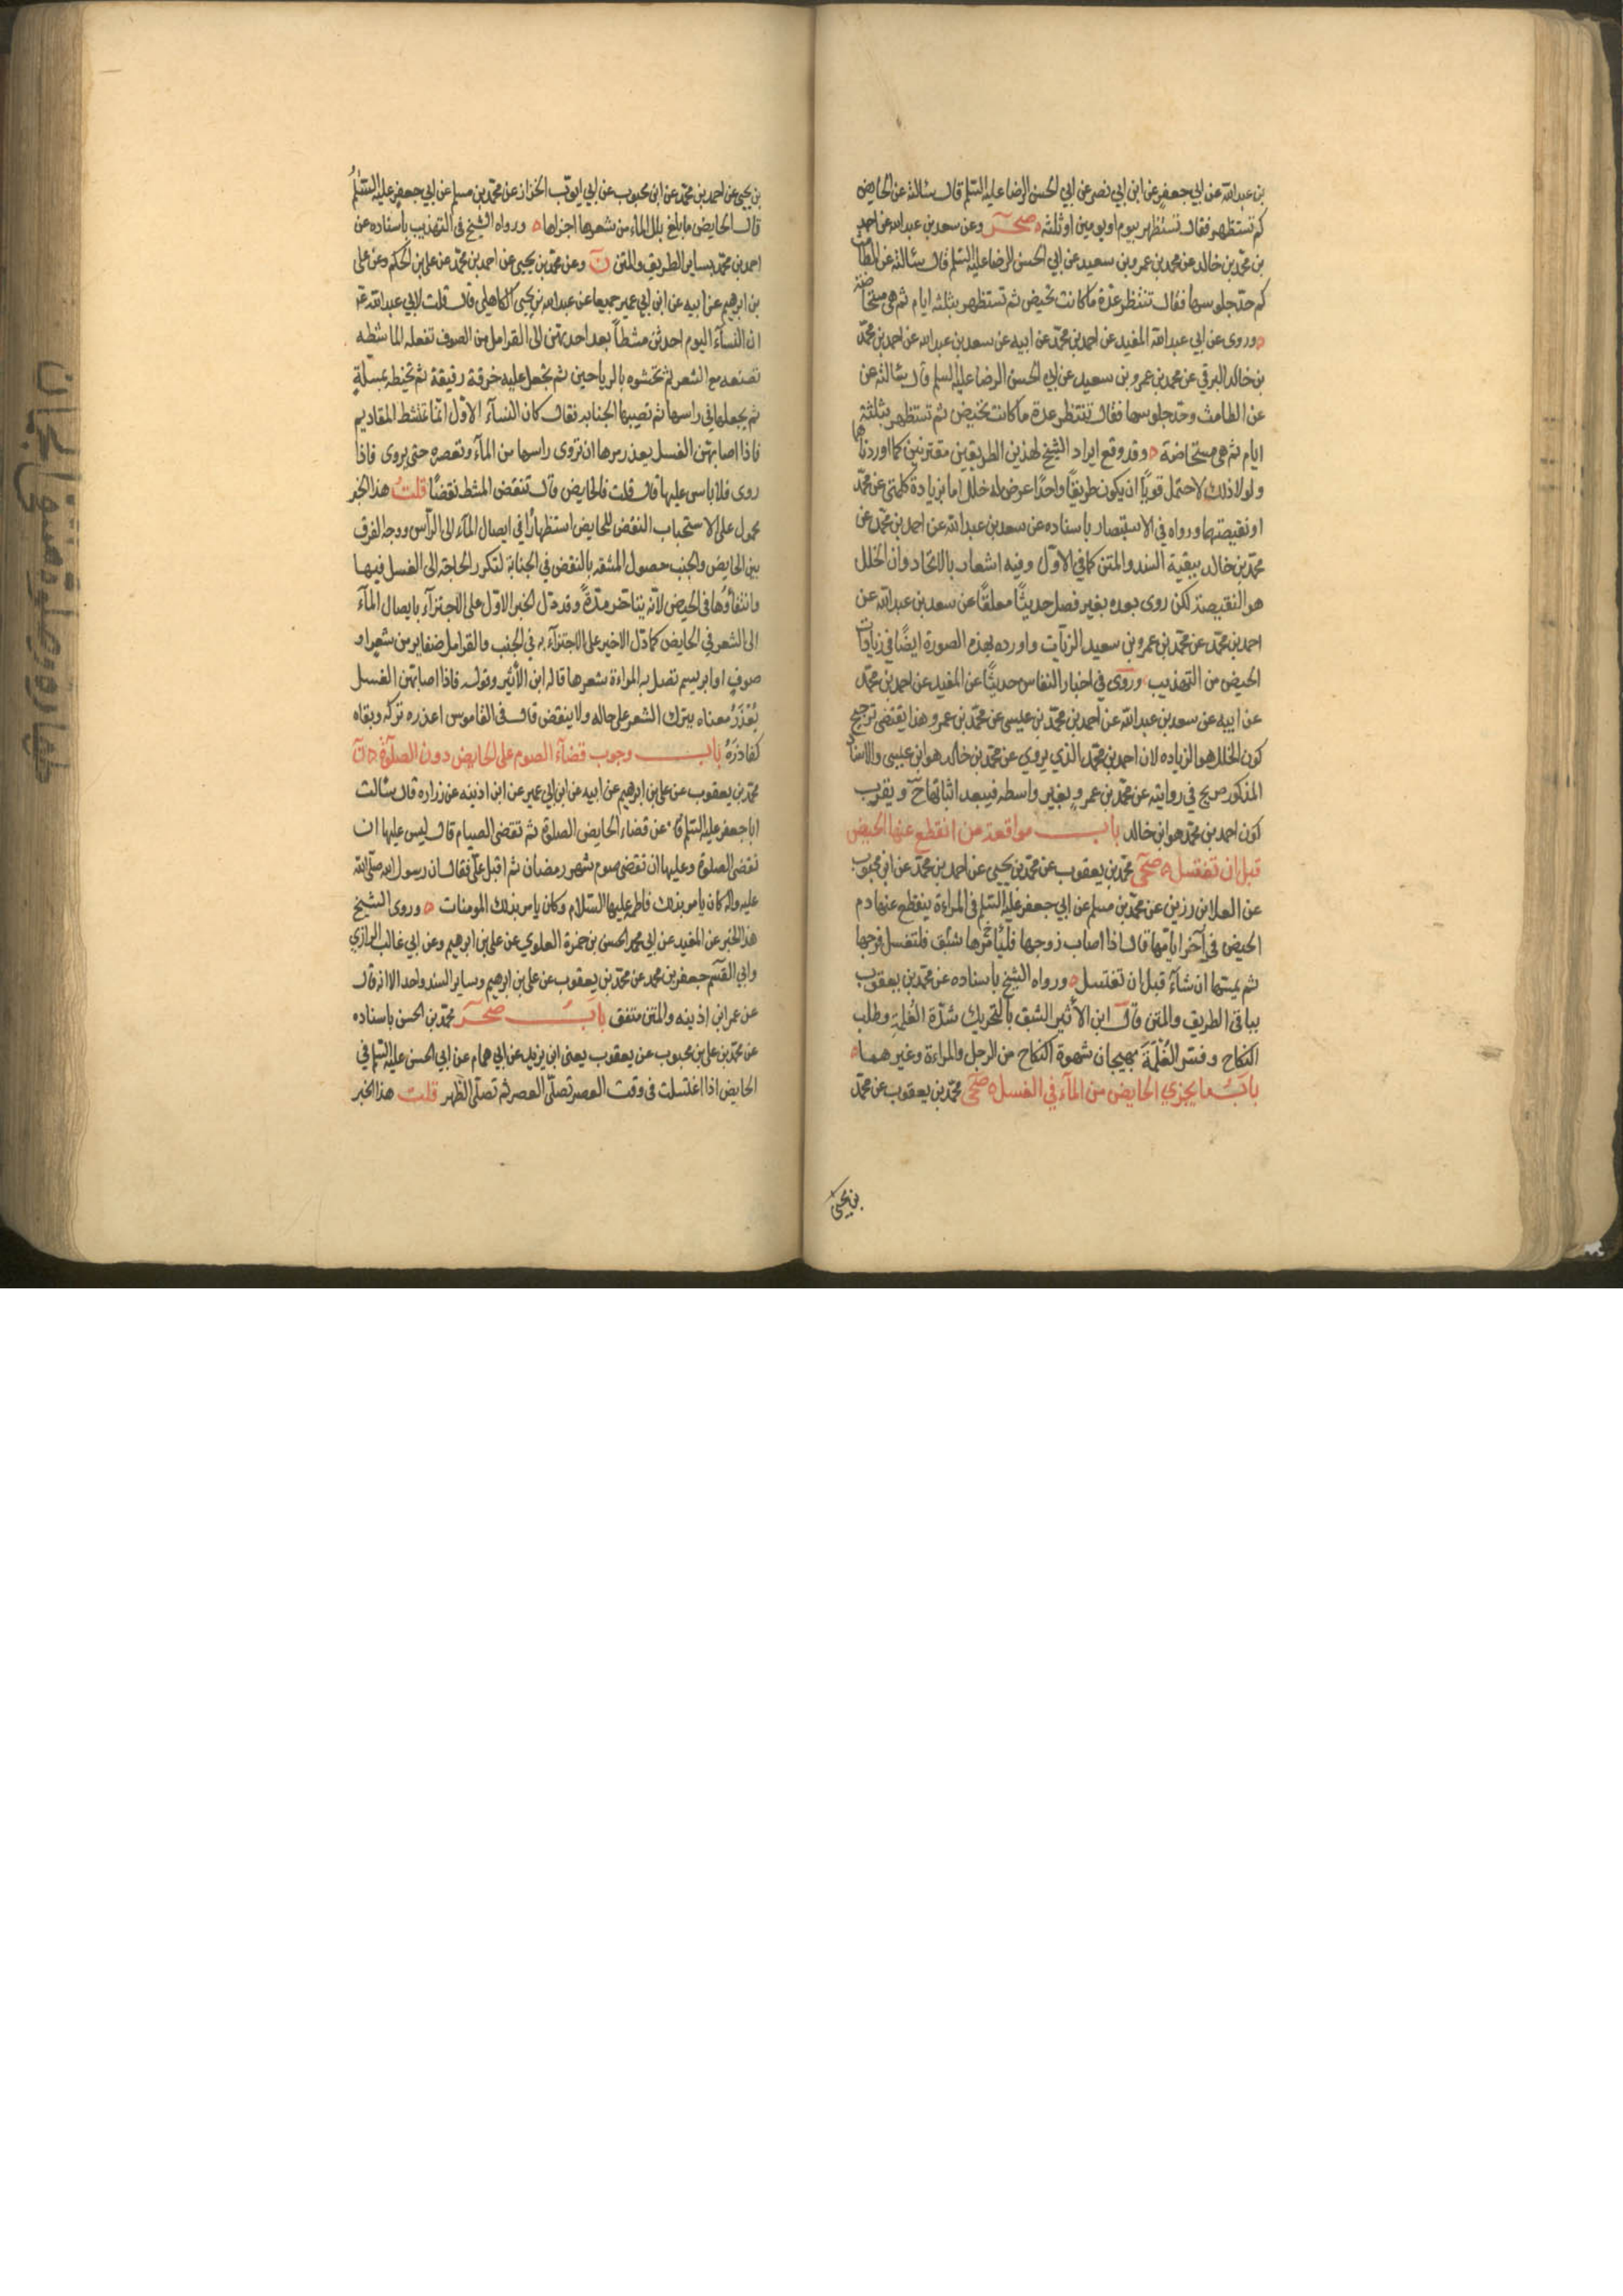 بن عبدالله عن ابي جعفر عن ابن ابي نصر عن ابي الحسن الرضا عليه السلم قال سالته عن الحايض
كم تستظهر فقال تستظهر بيوم او يومين او ثلثه صحر وعن سعد بن عبدالله عن احمد
بن محمد بن خالد عن محمد بن عمرو بن سعيد عن ابي الحسن الرضا عليه السلم قال سالته عن الطامث
كم حد جلوسها فقال تنتظر عدة ما كانت تحيض ثم تستظهر بثلثه ايام ثم هي مستحاضة
وروى عن ابي عبد الله المفيد عن احمد بن محمد عن ابيه عن سعد بن عبدالله عن احمد بن محمد
بن خالد البرقي عن محمد بن عمرو بن سعيد عن ابي الحسن الرضا عليه السلم قال سالته عن
عن الطامث وحد جلوسها فقال تنتظر عدة ما كانت تحيض ثم تستظهر بثلثة
ايام ثم هي مستحاضة وقد وقع ايراد الشيخ لهذين الطريقين مقترنين كما اوردناهما
ولولا ذلك لاحتمل قويا ان يكون طريقًا واحدًا عرض له خلل اما بزيادة كلمتي عن محمد
او نقيصتها ورواه في الاستبصار باسناده عن سعد بن عبدالله عن احمد بن محمد عن
محمد بن خالد ببقية السند والمتن كما في الاول وفيه اشعار بالاتحاد وان الخلل
هو النقيصة لكن روى بعده بغير فصل حديثًا معلقًا عن سعد بن عبدالله عن
احمد بن محمد عن محمد بن عمرو بن سعيد الزيات واورده بهذه الصورة ايضًا في زيادات
الحيض من التهذيب وروى في اخبار النفاس حديثًا عن المفيد عن احمد بن محمد
عن ابيه عن سعد بن عبدالله عن احمد بن محمد بن عيسى عن محمد بن عمرو وهذا يقتضي ترجيح
كون الخلل هو الزياده لان احمد بن محمد الذي يروي عن محمد بن خالد هو ابن عيسى والاسناد
المذكور صريح في روايته عن محمد بن عمرو بغير واسطه فيبعد اثباتها ح ويقرب
كون احمد بن محمد هو ابن خالد باب مواقعة من انقطع عنها الحيض
قبل ان تغتسل صحي محمد بن يعقوب عن محمد بن يحيى عن احمد بن محمد عن ابن محبوب
عن العلا بن رزين عن محمد بن مسلم عن ابي جعفر عليه السلم في المراءة ينقطع عنها دم
الحيض في آخر ايامها قال اذا اصاب زوجها شبق فلتغسل فرجها
ثم يمسها ان شاء قبل ان تغتسل ورواه الشيخ باسناده عن محمد بن يعقوب
بباقي الطريق والمتن قال ابن الأثير الشبق بالتحريك شدة الغلمة وطلب
النكاح وفسر الغُلْمَة بهيجان شهوة النكاح من الرجل والمراءة وغيرهما
باب ما يجزي الحايض من الماء في الغسل صحي محمد بن يعقوب عن محمد
بن يحيى
بن يحيى عن احمد بن محمد عن ابن محبوب عن ابي ايوب الخزاز عن محمد بن مسلم عن ابي جعفر عليه السلم
قال الحايض ما بلغ بلل الماء من شعرها اجزاها ورواه الشيخ في التهذيب باسناده عن
احمد بن محمد بساير الطريق والمتن ن وعن محمد بن يحيى عن احمد بن محمد عن علي بن الحكم وعن علي
بن ابرهيم عن ابيه عن ابن ابي عمير جميعا عن عبدالله بن يحيى الكاهلي قال قلت لابي عبدالله ع
ان النساء اليوم احدثن مشطًا بعد احديهن الى القرامل من الصوف تفعله الماشطه
تصنعه مع الشعر ثم تحشوه بالرياحين ثم تجعل عليه خرقة رقيقة ثم تخيطه بمسلة
ثم يجعلها في راسها ثم تصيبها الجنابه فقال كان النساء الاول انما تمتشط المقاديم
فاذا اصابتهن الغسل بعذر مرها ان تروى راسها من الماء وتعصره حتى يروى فاذا
روى فلا باس عليها قال قلت فالحايض قال تنقض المشط نقضًا قلت هذا الخبر
محمول على الاستحباب النقض للحايض استظهارًا في ايصال الماء الى الراس ووجه الفرق
بين الحايض والجنب حصول المشقه بالنقض في الجنابة لتكرر الحاجة الى الغسل فيها
وانتفاؤها في الحيض لانه يتاخر مدة وقد دل الخبر الاول على الاجتزاء بايصال الماء
الى الشعر في الحايض كما دل الاخير على الاجتزاء به في الجنب والقرامل ضفاير من شعر او
صوف او ابريسم تصل به المراءة شعرها قاله ابن الأثير وقوله فاذا اصابتهن الغسل
بُعْذَرُ معناه بترك الشعر على حاله ولا ينقض قال في القاموس اعذره تركه وبقاه
كغادَرَهُ باب وجوب قضاء الصوم على الحايض دون الصلوة ن
محمد بن يعقوب عن علي بن ابرهيم عن ابيه عن ابن ابي عمير عن ابن اذينه عن زراره قال سالت
ابا جعفر عليه السلم عن قضاء الحايض الصلوة ثم تقضى الصيام قال ليس عليها ان
تقضى الصلوة وعليها ان تقضى صوم شهر رمضان ثم اقبل علي فقال ان رسول الله صلى الله
عليه واله كان يامر بذلك فاطمه عليها السلام وكان يامر بذلك المومنات وروى الشيخ
هذا الخبر عن المفيد عن ابي محمد الحسن بن حمزة العلوي عن علي بن ابرهيم وعن ابي غالب الرازي
وابي القسم جعفر بن محمد عن محمد بن يعقوب عن علي بن ابرهيم وساير السند واحد الا انه قال
عن عمر ابن اذينه والمتن متفق باب صحر محمد بن الحسن باسناده
عن محمد بن علي بن محبوب عن يعقوب يعنى ابن يزيد عن ابي همام عن ابي الحسن عليه السلم في
الحايض اذا اغتسلت في وقت العصر تصلى العصر ثم تصلى الظهر قلت هذا الخبر